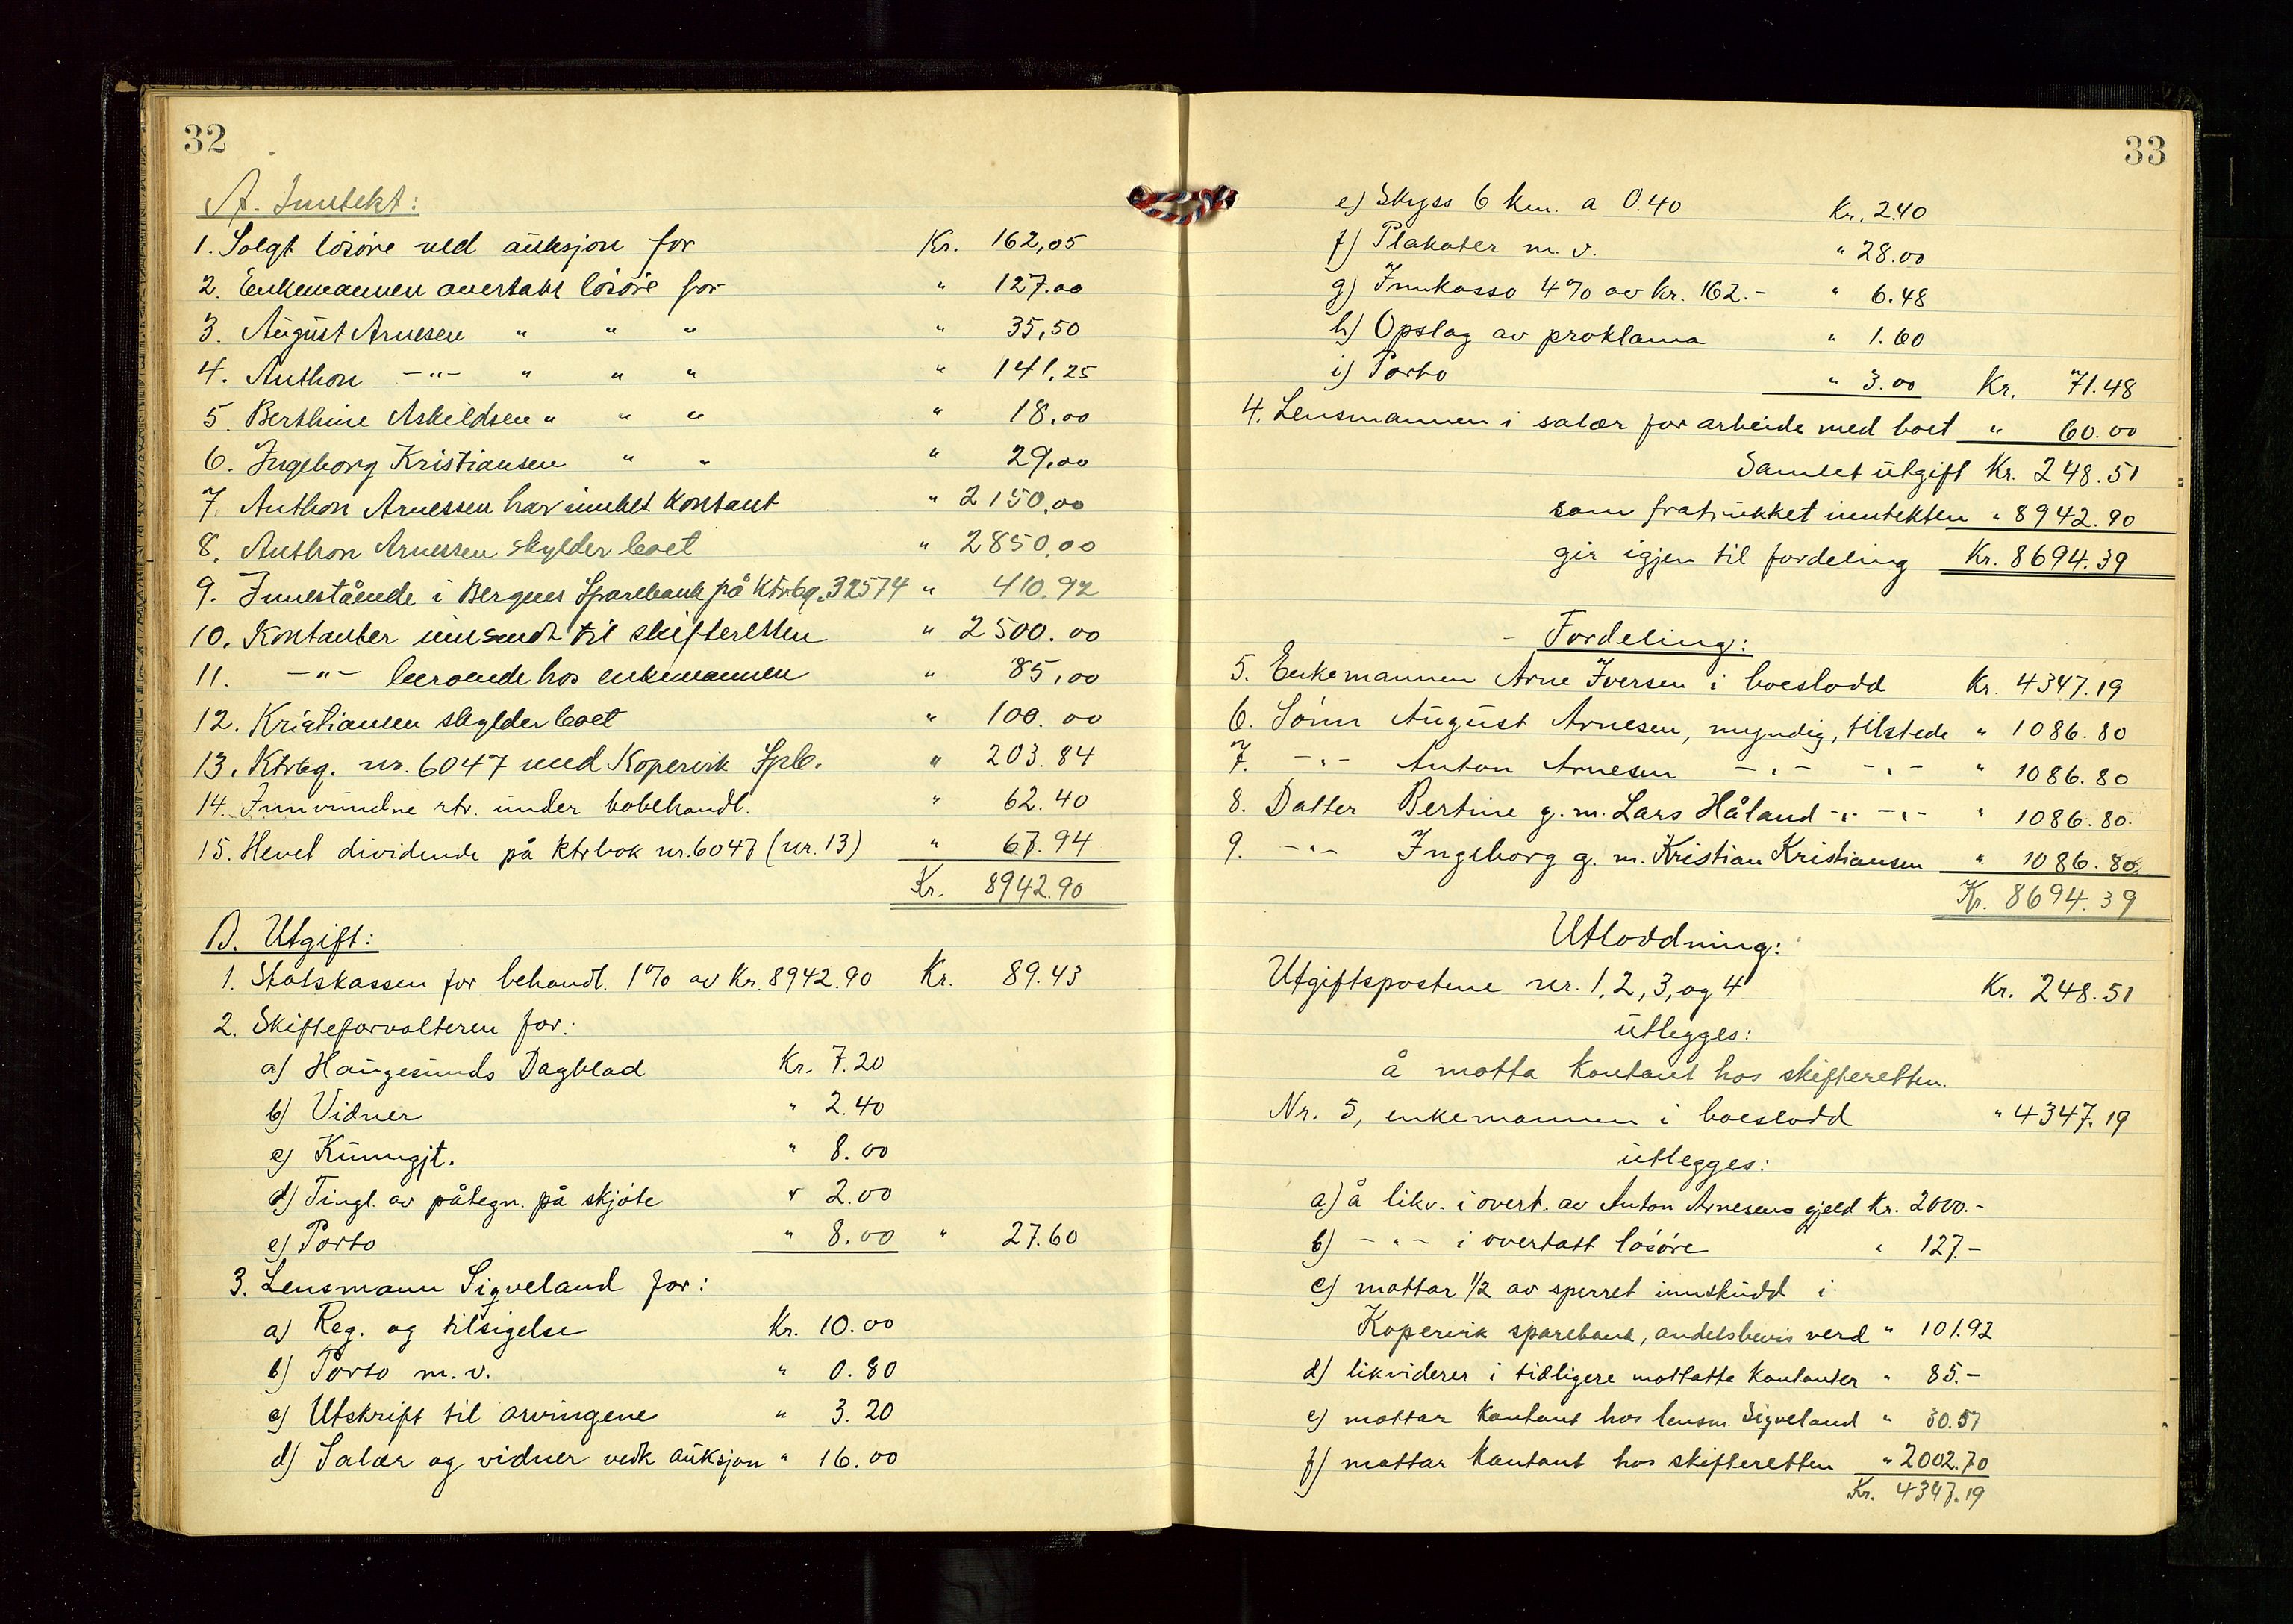 32
A. Inntekt:
1. Solgt løsøre ved auksjon for Kr. 162,05
2. Enkemannen overtatt løsøre for " 127.00
3. August Arnesen " " " " 35,50
4. Anthon -"- " " " " 141,25
5. Berthine Askildsen " " " " 18,00
6. Ingeborg Kristiansen " " " 29,00
7. Anthon Arnessen har innbet kontant " 2150,00
8. Anthon Arnessen skylder boet " 2850,00
9. Innestående i Bergens Sparebank på Ktrbg. 32574 " 410.92
10. Kontanter innsendt til skifteretten " 2500.00
11. -"- beroende hos enkemannen " 85,00
12. Kristiansen skylder boet " 100.00
13. Ktrbg. nr. 6047 med Kopervik Spb. " 203.84
14. Innvundne rtr. under bobehandl. " 62.40
15. Hevet dividende på ktrbok nr. 6047 (nr. 13) " 67.94
Kr. 8942.90
B. Utgift:
1. Statskassen for behandl. 1% av Kr. 8942.90 Kr. 89.43
2. Skifteforvalteren for:
a) Haugesunds Dagblad Kr. 7.20
b) Vidner " 2.40
c) Kunngjt. " 8.00
d) Tingl. av påtegn. på skjøte " 2.00
e) Porto " 8.00 " 27.60
3. Lensmann Sigveland for:
a) Reg. og tilsigelse Kr. 10.00
b) Porto m.v. " 0.80
c) Utskrift til arvingene " 3.20
d) Salær og vidner vedk auksjon " 16.00
33
e) Skyss 6 km. a 0.40 Kr. 2.40
f) Plakater m.v. " 28.00
g) Innkasso 4% av kr. 162.- " 6.48
h) Opslag av proklama " 1.60
i) Porto " 3.00 Kr. 71.48
4. Lensmannen i salær for arbeide med boet " 60.00
Samlet utgift Kr. 248.51
som fratrukket inntekten " 8942.90
gir igjen til fordeling Kr. 8694.39
Fordeling:
5. Enkemannen Arne Iversen i boeslodd Kr. 4347.19
6. Sønn August Arnesen, myndig, tilstede " 1086.80
7. -"- Anton Arnesen -"- -"- " 1086.80
8. Datter Bertine g.m. Lars Håland -"- -"- " 1086.80
9. -"- Ingeborg g.m. Kristian Kristiansen " 1086.80
Kr. 8694.39
Utloddning:
Utgiftspostene nr. 1, 2, 3, og 4 Kr. 248.51
utlegges:
å motta kontant hos skifteretten.
Nr. 5, enkemannen i boeslodd " 4347.19
utlegges:
a) å likv. i overt. av Anton Arnesens gjeld Kr. 2000.-
b) -"- i overtatt løsøre " 127.-
c) mottar 1/2 av sperret innskudd i
Kopervik sparebank, andelsbevis verd " 101.92
d) likviderer i tidligere mottatte kontanter " 85.-
e) mottar kontant hos lensm. Sigveland " 30.57
f) mottar kontant hos skifteretten " 2002.70
Kr. 4347.19